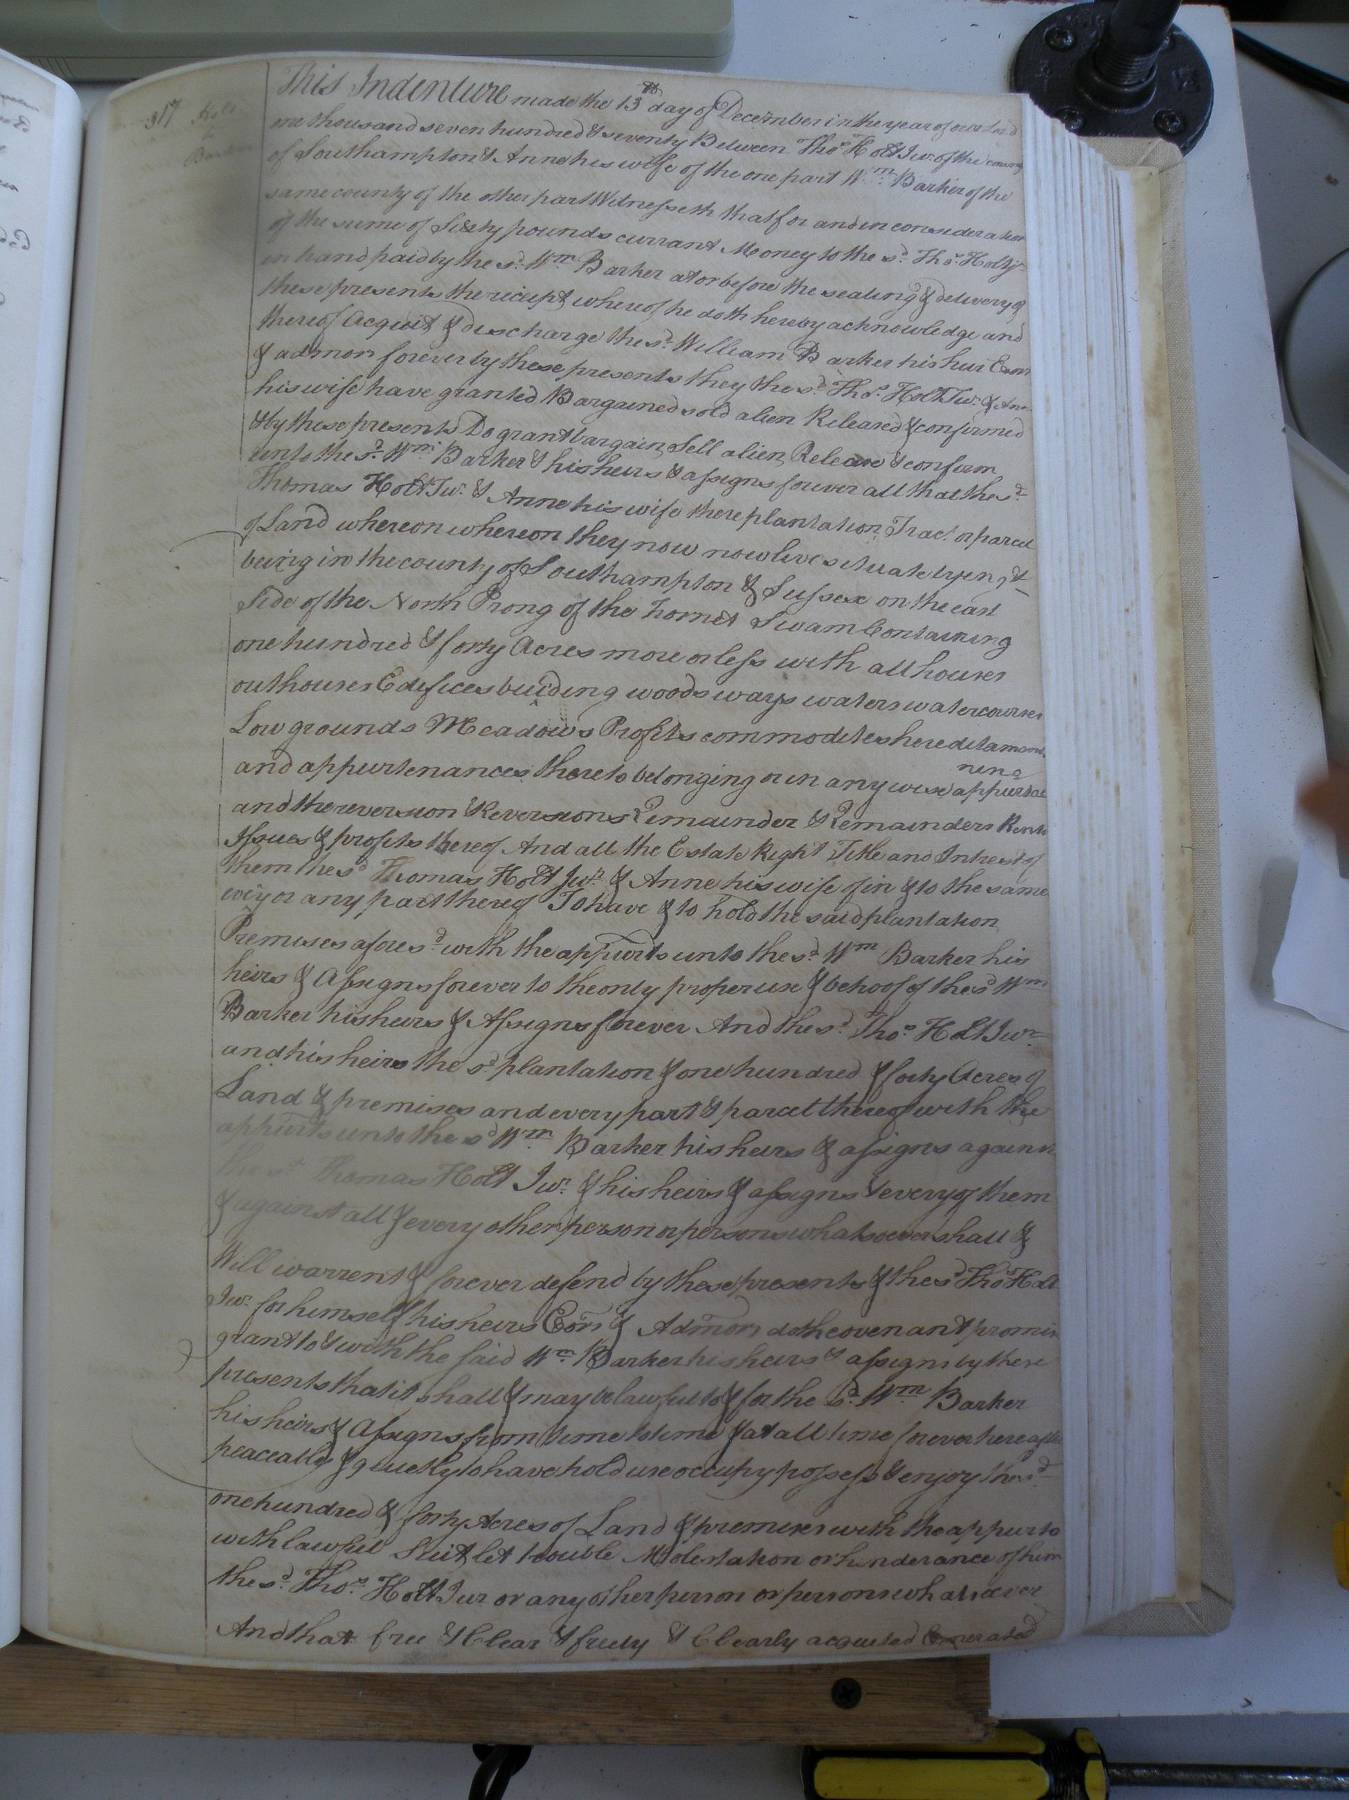 317 Holt
to
Barker
This Indenture made the 13th day of December in the year of our Lord
one thousand seven hundred & seventy Between Thos. Holt Jur. of the county
of Southampton & Anne his wife of the one part Wm. Barker of the
same county of the other part Witnesseth that for and in consideration
of the sume of Sixty pounds currant Money to the sd. Thos. Holt Jr
in hand paid by the sd. Wm. Barker at or before the sealing & delivery of
these presents the reciept whereof he doth hereby acknowledge and
thereof Acquit & discharge the sd. William Barker his heir Exors
& admon forever by these presents they the sd. Thos. Holt Jur. & Ann
his wife have granted Bargained sold alien Released & confirmed
& by these presents Do grant bargain Sell alien Release & confirm
unto the sd. Wm. Barker & his heirs & assigns forever all that the sd.
Thomas Holt Jur. & Anne his wife there plantation Tract or parcel
of Land whereon whereon they now now live situate lying &
being in the county of Southampton & Sussex on the east
Side of the North Prong of the hornet Swam Containing
one hundred & forty Acres more or less with all houses
outhouses Edifices buiding woods ways waters watercourses
Low grounds Meadows Profits commodites hereditaments
and appurtenances thereto belonging or in any wise appurtai
ning
and the reversion & Reversions Remainder & Remainders Rents
Issues & profits thereof And all the Estate Right Title and Intrest of
them the sd. Thomas Holt Jur. & Anne his wife of in & to the same
evry or any part thereof To have & to hold the said plantation
Premises afores.d with the appurts unto the sd. Wm Barker his
heirs & Assigns forever to the only proper use & behoof of the sd Wm
Barker his heirs & Assigns forever And the sd. Thos. Holt Jur
and his heirs the sd plantation & one hundred & forty Acres of
Land & premises and every part & parcel thereof with the
appurts unto the sd Wm. Barker his heirs & assigns against
the sd. Thomas Holt Jur. & his heirs & assigns & every of them
& against all & every other person or persons whatsoever shall &
Will warrent & forever defend by these presents & the sd Thos Holt
Jur. for himself his heirs Exors & Admors doth covenant promis
grant to & with the said Wm. Barker his heirs & assigns by these
presents that it shall & may be lawful to & for the sd. Wm Barker
his heirs & Assigns from time to time & at all time forever hereafter
peaceably & quietly to have hold use occupy possess & enjoy the sd.
one hundred & forty Acres of Land & premises with the appurts
with lawful Suit let trouble Molestation or hinderance of him
the sd. Thos. Holt Jur or any other person or persons whatsoever
And that free & Clear & freely & Clearly acquited Exonerated